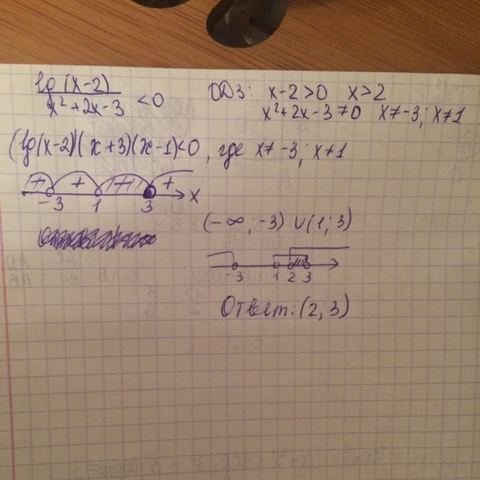 lg(x-2)
x²+2x-3 <0
ОДЗ: x-2>0 x>2
x²+2x-3≠0 x≠-3; x≠1
(lg(x-2)(x+3)(x-1)<0, где x≠-3; x≠1
+ + +
-3 1 3 x
(-∞;-3) ∪ (1;3)
-3 1 2 3
Ответ: (2,3)